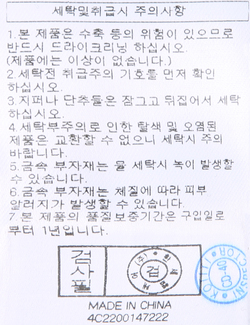 세탁및취급시 주의사항
1.본 제품은 수축 등의 위험이 있으므로
반드시 드라이크리닝 하십시오.
(제품에는 이상이 없습니다.)
2.세탁전 취급주의 기호를 먼저 확인
하십시오.
3.지퍼나 단추들은 잠그고 뒤집어서 세탁
하십시오.
4.세탁부주의로 인한 탈색 및 오염된
제품은 교환할 수 없으니 세탁시 주의
바랍니다.
5.금속 부자재는 물 세탁시 녹이 발생할
수 있습니다.
6.금속 부자재는 체질에 따라 피부
알러지가 발생할 수 있습니다.
7.본 제품의 품질보증기간은 구입일로
부터 1년입니다.
검사필
검
MADE IN CHINA
4C2200147222